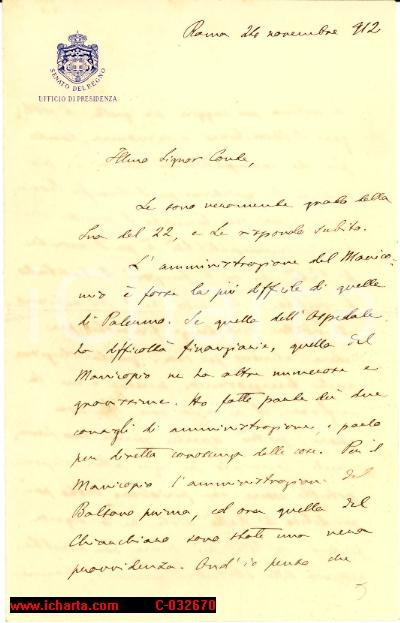 Roma 24 novembre 912
SENATO DEL REGNO
UFFICIO DI PRESIDENZA
Illmo Signor Conte,
Le sono veramente grato della
Sua del 22, e Le rispondo subito.
L'amministrazione del Manico-
mio è forse la più difficile di quelle
di Palermo. Se quella dell'Ospedale
ha difficoltà finanziarie, quella del
Manicomio ne ha altre numerose e
gravissime. Ho fatto parte dei due
consigli di amministrazione, e parlo
per diretta conoscenza delle cose. Per il
Manicomio l'amministrazione del
prima, ed ora quella del
Chiaro sono state una vera
provvidenza. Ond'io penso che
www.icharta.com C-032670